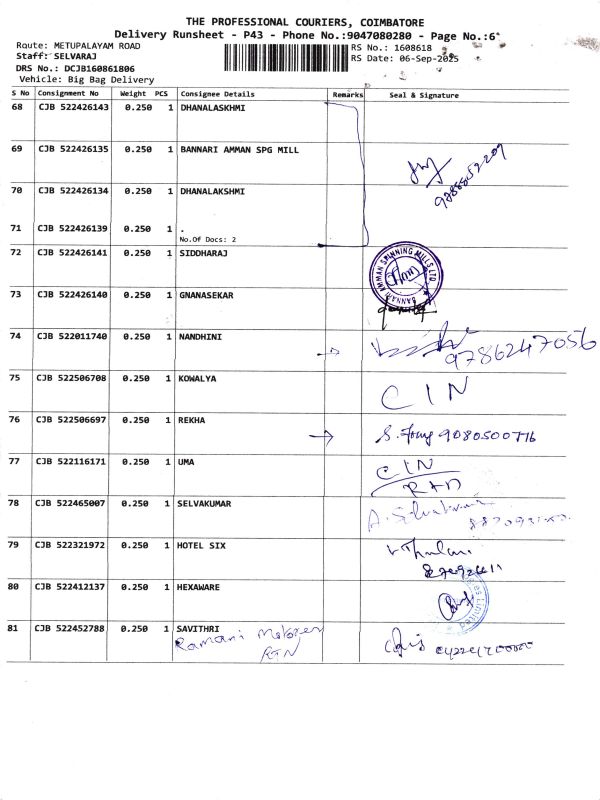 THE PROFESSIONAL COURIERS, COIMBATORE
Delivery Runsheet - P43 - Phone No.:9047080280 - Page No.:6
Route: METUPALAYAM ROAD
RS No.: 1608618
Staff: SELVARAJ
RS Date: 06-Sep-2025
DRS No.: DCJB160861806
Vehicle: Big Bag Delivery
S No Consignment No Weight PCS Consignee Details Remarks Seal & Signature
68 CJB 522426143 0.250 1 DHANALASKHMI
69 CJB 522426135 0.250 1 BANNARI AMMAN SPG MILL
70 CJB 522426134 0.250 1 DHANALAKSHMI
71 CJB 522426139 0.250 1 .
No.Of Docs: 2
72 CJB 522426141 0.250 1 SIDDHARAJ
BANNARI AMMAN SPINNING MILLS LTD
73 CJB 522426140 0.250 1 GNANASEKAR
74 CJB 522011740 0.250 1 NANDHINI
9786247056
75 CJB 522506708 0.250 1 KOWALYA CIN
76 CJB 522506697 0.250 1 REKHA
9080500776
77 CJB 522116171 0.250 1 UMA CIN
78 CJB 522465007 0.250 1 SELVAKUMAR
79 CJB 522321972 0.250 1 HOTEL SIX
80 CJB 522412137 0.250 1 HEXAWARE
Limited
81 CJB 522452788 0.250 1 SAVITHRI
Ramani Motors